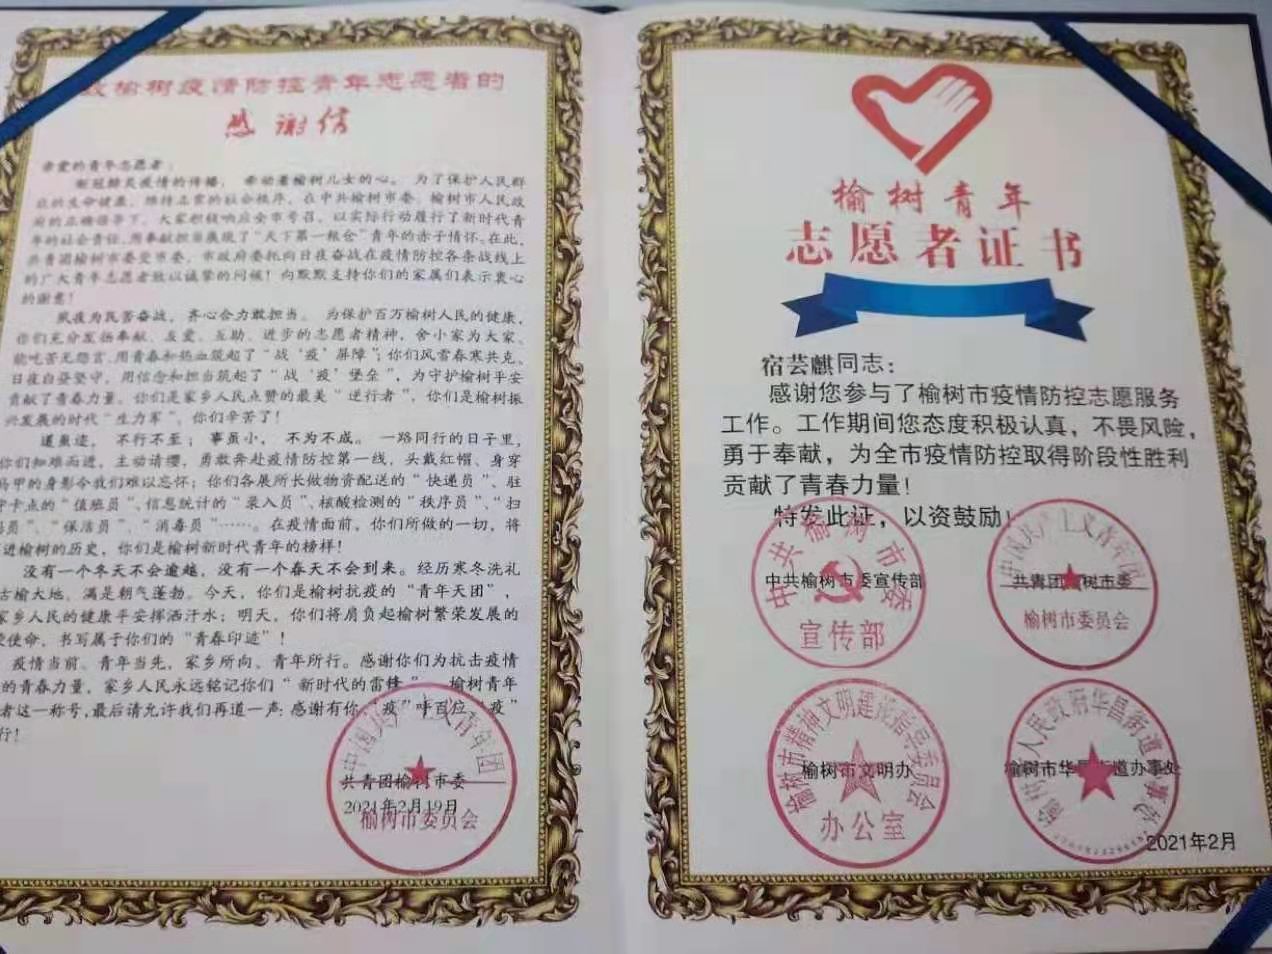 致榆树疫情防控青年志愿者的
感谢信
亲爱的青年志愿者：
新冠肺炎疫情的传播，牵动着榆树儿女的心。为了保护人民群
众的生命健康，维持正常的社会秩序，在中共榆树市委、榆树市人民政
府的正确领导下，大家积极响应全市号召，以实际行动履行了新时代青
年的社会责任，用奉献担当展现了“天下第一粮仓”青年的赤子情怀。在此，
共青团榆树市委受市委、市政府委托向日夜奋战在疫情防控各条战线上
的广大青年志愿者致以诚挚的问候！向默默支持你们的家属们表示衷心
的谢意！
夙夜为民苦奋战，齐心合力敢担当。为保护百万榆树人民的健康，
你们充分发扬奉献、友爱、互助、进步的志愿者精神，舍小家为大家、
能吃苦无怨言，用青春和热血筑起了“战‘疫’屏障”；你们风雪春寒共克、
日夜白昼坚守，用信念和担当筑起了“战‘疫’堡垒”，为守护榆树平安
贡献了青春力量。你们是家乡人民点赞的最美“逆行者”，你们是榆树振
兴发展的时代“生力军”，你们辛苦了！
道虽迩，不行不至；事虽小，不为不成。一路同行的日子里，
你们知难而进，主动请缨，勇敢奔赴疫情防控第一线，头戴红帽、身穿
马甲的身影令我们难以忘怀；你们各展所长做物资配送的“快递员”、驻
守卡点的“值班员”、信息统计的“录入员”、核酸检测的“秩序员”、“扫
码员”、“保洁员”、“消毒员”……。在疫情面前，你们所做的一切，将
进榆树的历史，你们是榆树新时代青年的榜样！
没有一个冬天不会逾越，没有一个春天不会到来。经历寒冬洗礼
古榆大地，满是朝气蓬勃。今天，你们是榆树抗疫的“青年天团”，
家乡人民的健康平安挥洒汗水；明天，你们将肩负起榆树繁荣发展的
使命，书写属于你们的“青春印迹”！
疫情当前、青年当先，家乡所向、青年所行。感谢你们为抗击疫情
的青春力量，家乡人民永远铭记你们“新时代的雷锋”——榆树青年
者这一称号，最后请允许我们再道一声：感谢有你，“疫”呼百应“疫”
行！
中国共产主义青年团
共青团榆树市委
2021年2月19日
榆树市委员会
榆树青年
志愿者证书
宿芸麒同志：
感谢您参与了榆树市疫情防控志愿服务
工作。工作期间您态度积极认真，不畏风险，
勇于奉献，为全市疫情防控取得阶段性胜利
贡献了青春力量！
特发此证，以资鼓励！
中共榆树市委
中共榆树市委宣传部
宣传部
中国共产主义青年团
共青团榆树市委
榆树市委员会
榆树市精神文明建设指导委员会
榆树市文明办
办公室
榆树市人民政府华昌街道办事处
榆树市华昌街道办事处
2021年2月